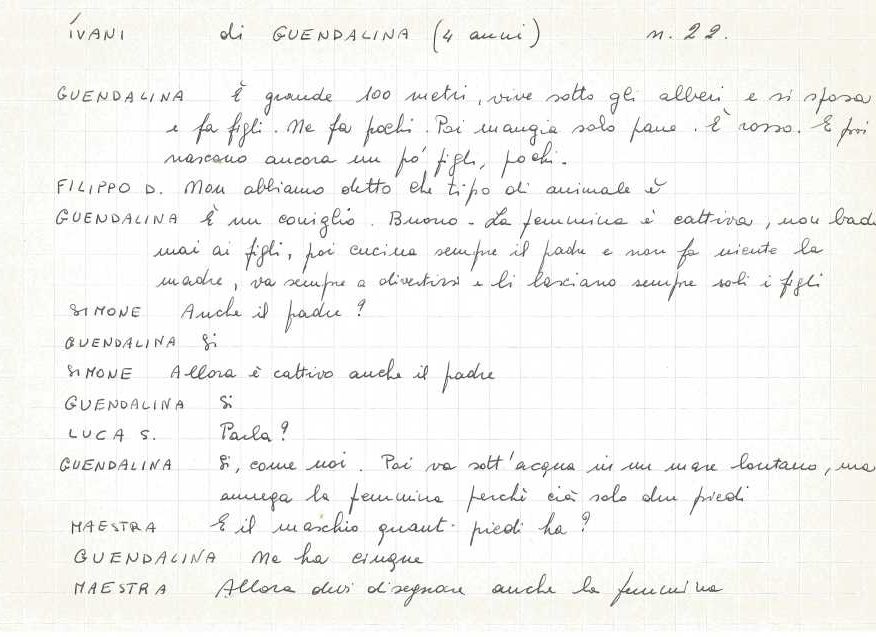 ÍVANI di GUENDALINA (4 anni) n. 22.
GUENDALINA È grande 100 metri, vive sotto gli alberi e si sposa
e fa figli. Ne fa pochi. Poi mangia solo pane. È rosso. E poi
nascono ancora un pó figli, pochi.
FILIPPO D. Non abbiamo detto che tipo di animale è
GUENDALINA È un coniglio. Buono. La femmina è cattiva, non bada
mai ai figli, poi cucina sempre il padre e non fa niente la
madre, va sempre a divertirsi e li lasciano sempre soli i figli
SIMONE Anche il padre?
GUENDALINA Si
SIMONE Allora è cattivo anche il padre
GUENDALINA Si
LUCA S. Parla?
GUENDALINA Si, come noi. Poi va sott'acqua in un mare lontano, ma
annega la femmina perchè cià solo due piedi
MAESTRA E il maschio quanti piedi ha?
GUENDALINA Ne ha cinque
MAESTRA Allora devi disegnare anche la femmina